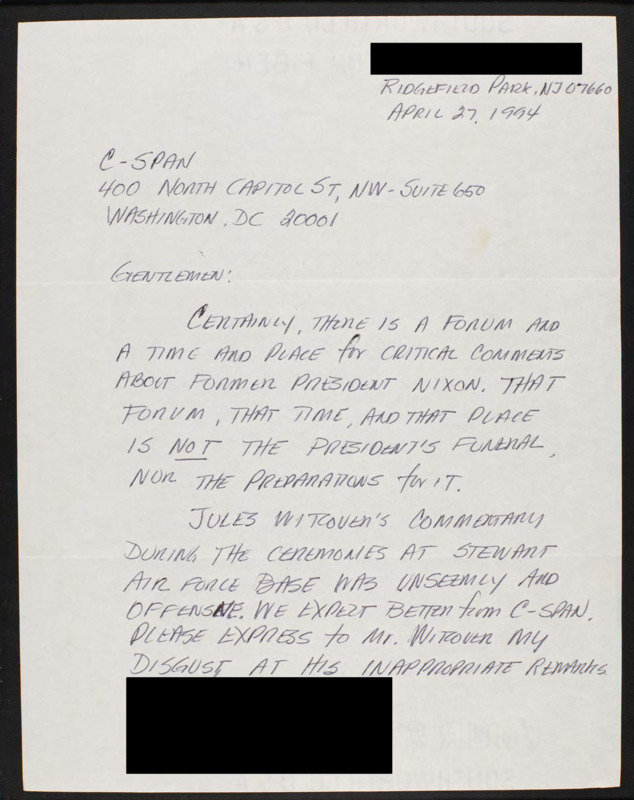 Ridgefield Park, NJ 07660
April 27, 1994
C-SPAN
400 North Capitol St, NW - Suite 650
Washington, DC 20001
Gentlemen:
Certainly, there is a forum and
a time and place for critical comments
about former President Nixon. That
forum, that time, and that place
is NOT the President's funeral,
nor the preparations for it.
Jules Witcover's commentary
during the ceremonies at Stewart
Air Force Base was unseemly and
offensive. We expect better from C-SPAN.
Please express to Mr. Witcover my
disgust at his inappropriate remarks.